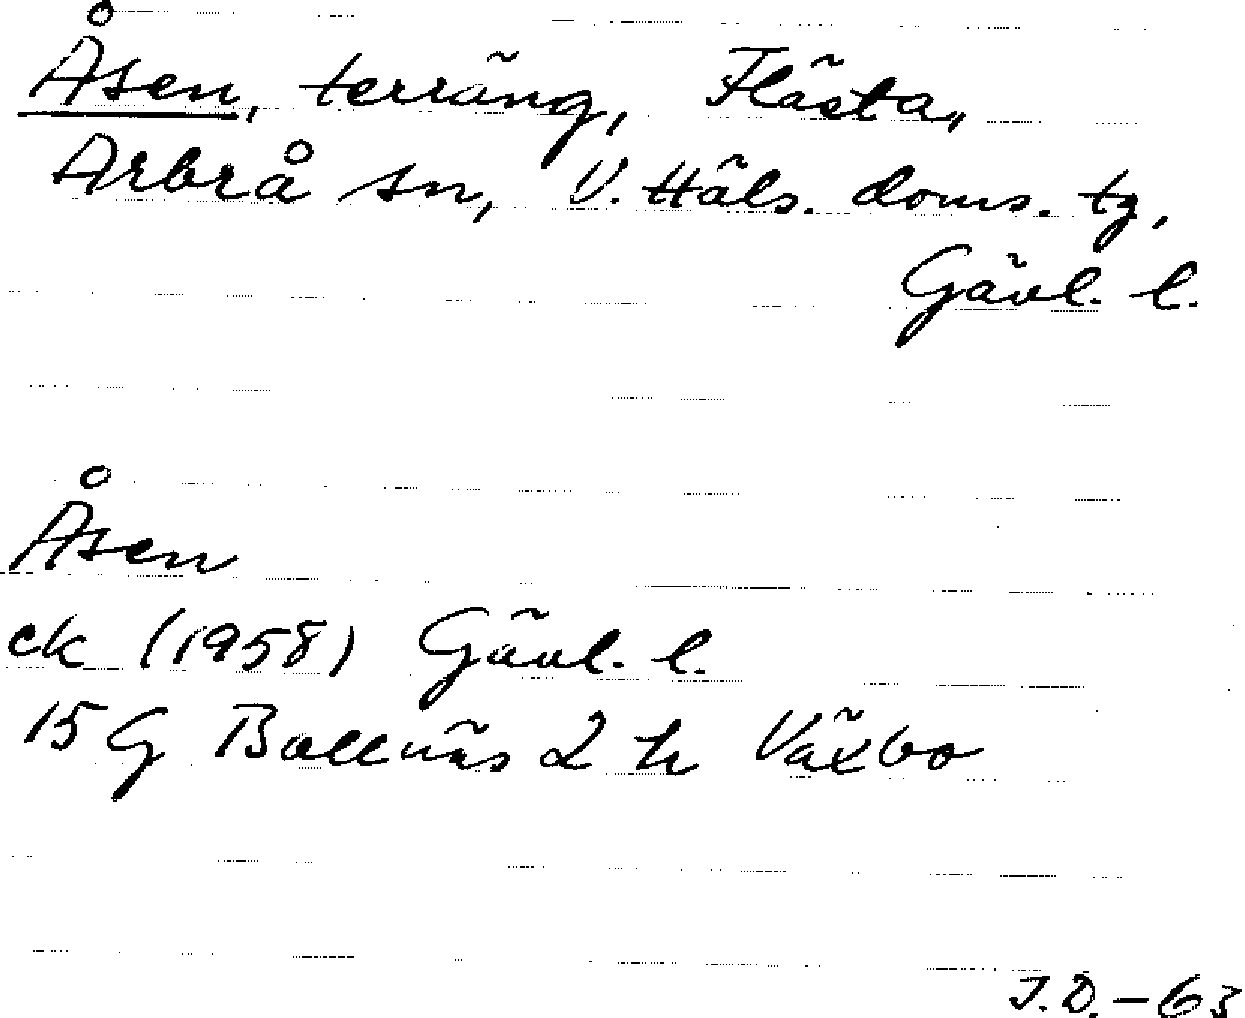 Åsen, terräng, Flästa,
Arbrå sn, V. Häls. doms. tg,
Gävl. l.
Åsen
ek (1958) Gävl. l.
15 G Bollnäs 2 h Växbo
J.D. - 63